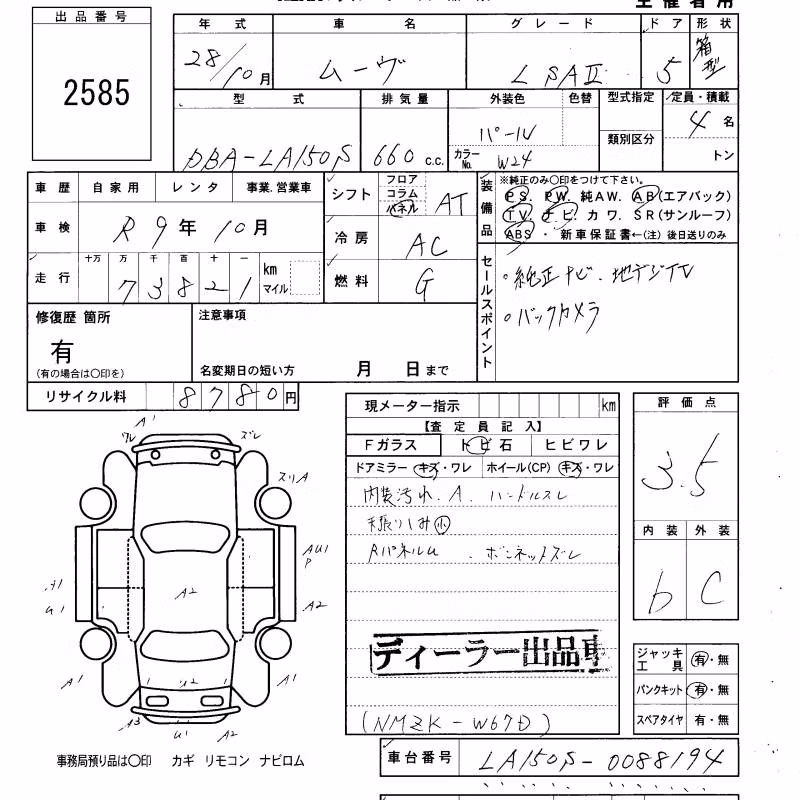 出品番号
2585
年式 車名 グレード ドア 形状
28/10月 ムーヴ L SAⅡ 5 箱型
型式 排気量 外装色 色替 型式指定 定員・積載
類別区分
DBA-LA150S 660 c.c. パール カラーNo. W24 4名
トン
車歴 自家用 レンタ 事業.営業車
車検 R9年10月
走行 十万 万 千 百 十 一
73821 km マイル
シフト フロア コラム パネル AT
冷房 AC
燃料 G
装備品 ※純正のみ○印をつけて下さい。
PS. PW. 純AW. AB(エアバック)
TV. ナビ. カワ. SR(サンルーフ)
ABS ・ 新車保証書←(注) 後日送りのみ
セールスポイント
・純正ナビ.地デジTV
・バックカメラ
修復歴 箇所
有
(有の場合は○印を)
注意事項
名変期日の短い方 月 日まで
リサイクル料 8780円
現メーター指示 km
【査定員記入】
Fガラス トビ石 ヒビワレ
ドアミラー キズ・ワレ ホイール(CP) キズ・ワレ
内装汚れ.A. ハンドルスレ
天張りシミ小
RパネルU . ボンネットズレ
ディーラー出品車
(NMZK-W67D)
評価点
3.5
内装 外装
b C
ジャッキ工具 有・無
パンクキット 有・無
スペアタイヤ 有・無
A1
ワレ ズレ
スリA
AU1
P
U1
A2
A2
A1
A1
A3
U1
A2
事務局預り品は○印 カギ リモコン ナビロム
車台番号 LA150S-0088194